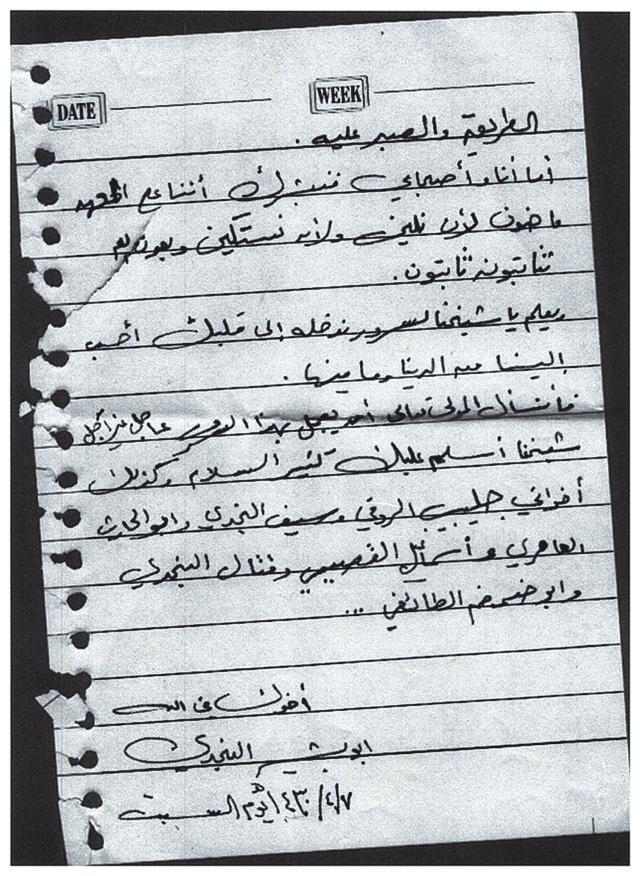 DATE WEEK
الطريقة والصبر عليه .
أما أنا وأصحابي نبشرك أننا على العهد
ماضون لن نلين ولن نستكين وبعون الله
ثابتون ثابتون .
يعلم يا شيخنا لسرور ندخله إلى قلبك أحب
إلينا من الدنيا وما فيها .
فأسأل المولى تعالى أن يعجل بهذا عاجل
شيخنا أسلم عليك كثير السلام وكذلك
أخواني جليبيب الروقي وسيف النجدي وابو الحارث
العامري و القصيمي وقتال النجدي
وابو ضمضم الطائفي ...
أخوك في الله
ابو بشير النجدي
١٤٣٠/٤/٧ هـ يوم السبت